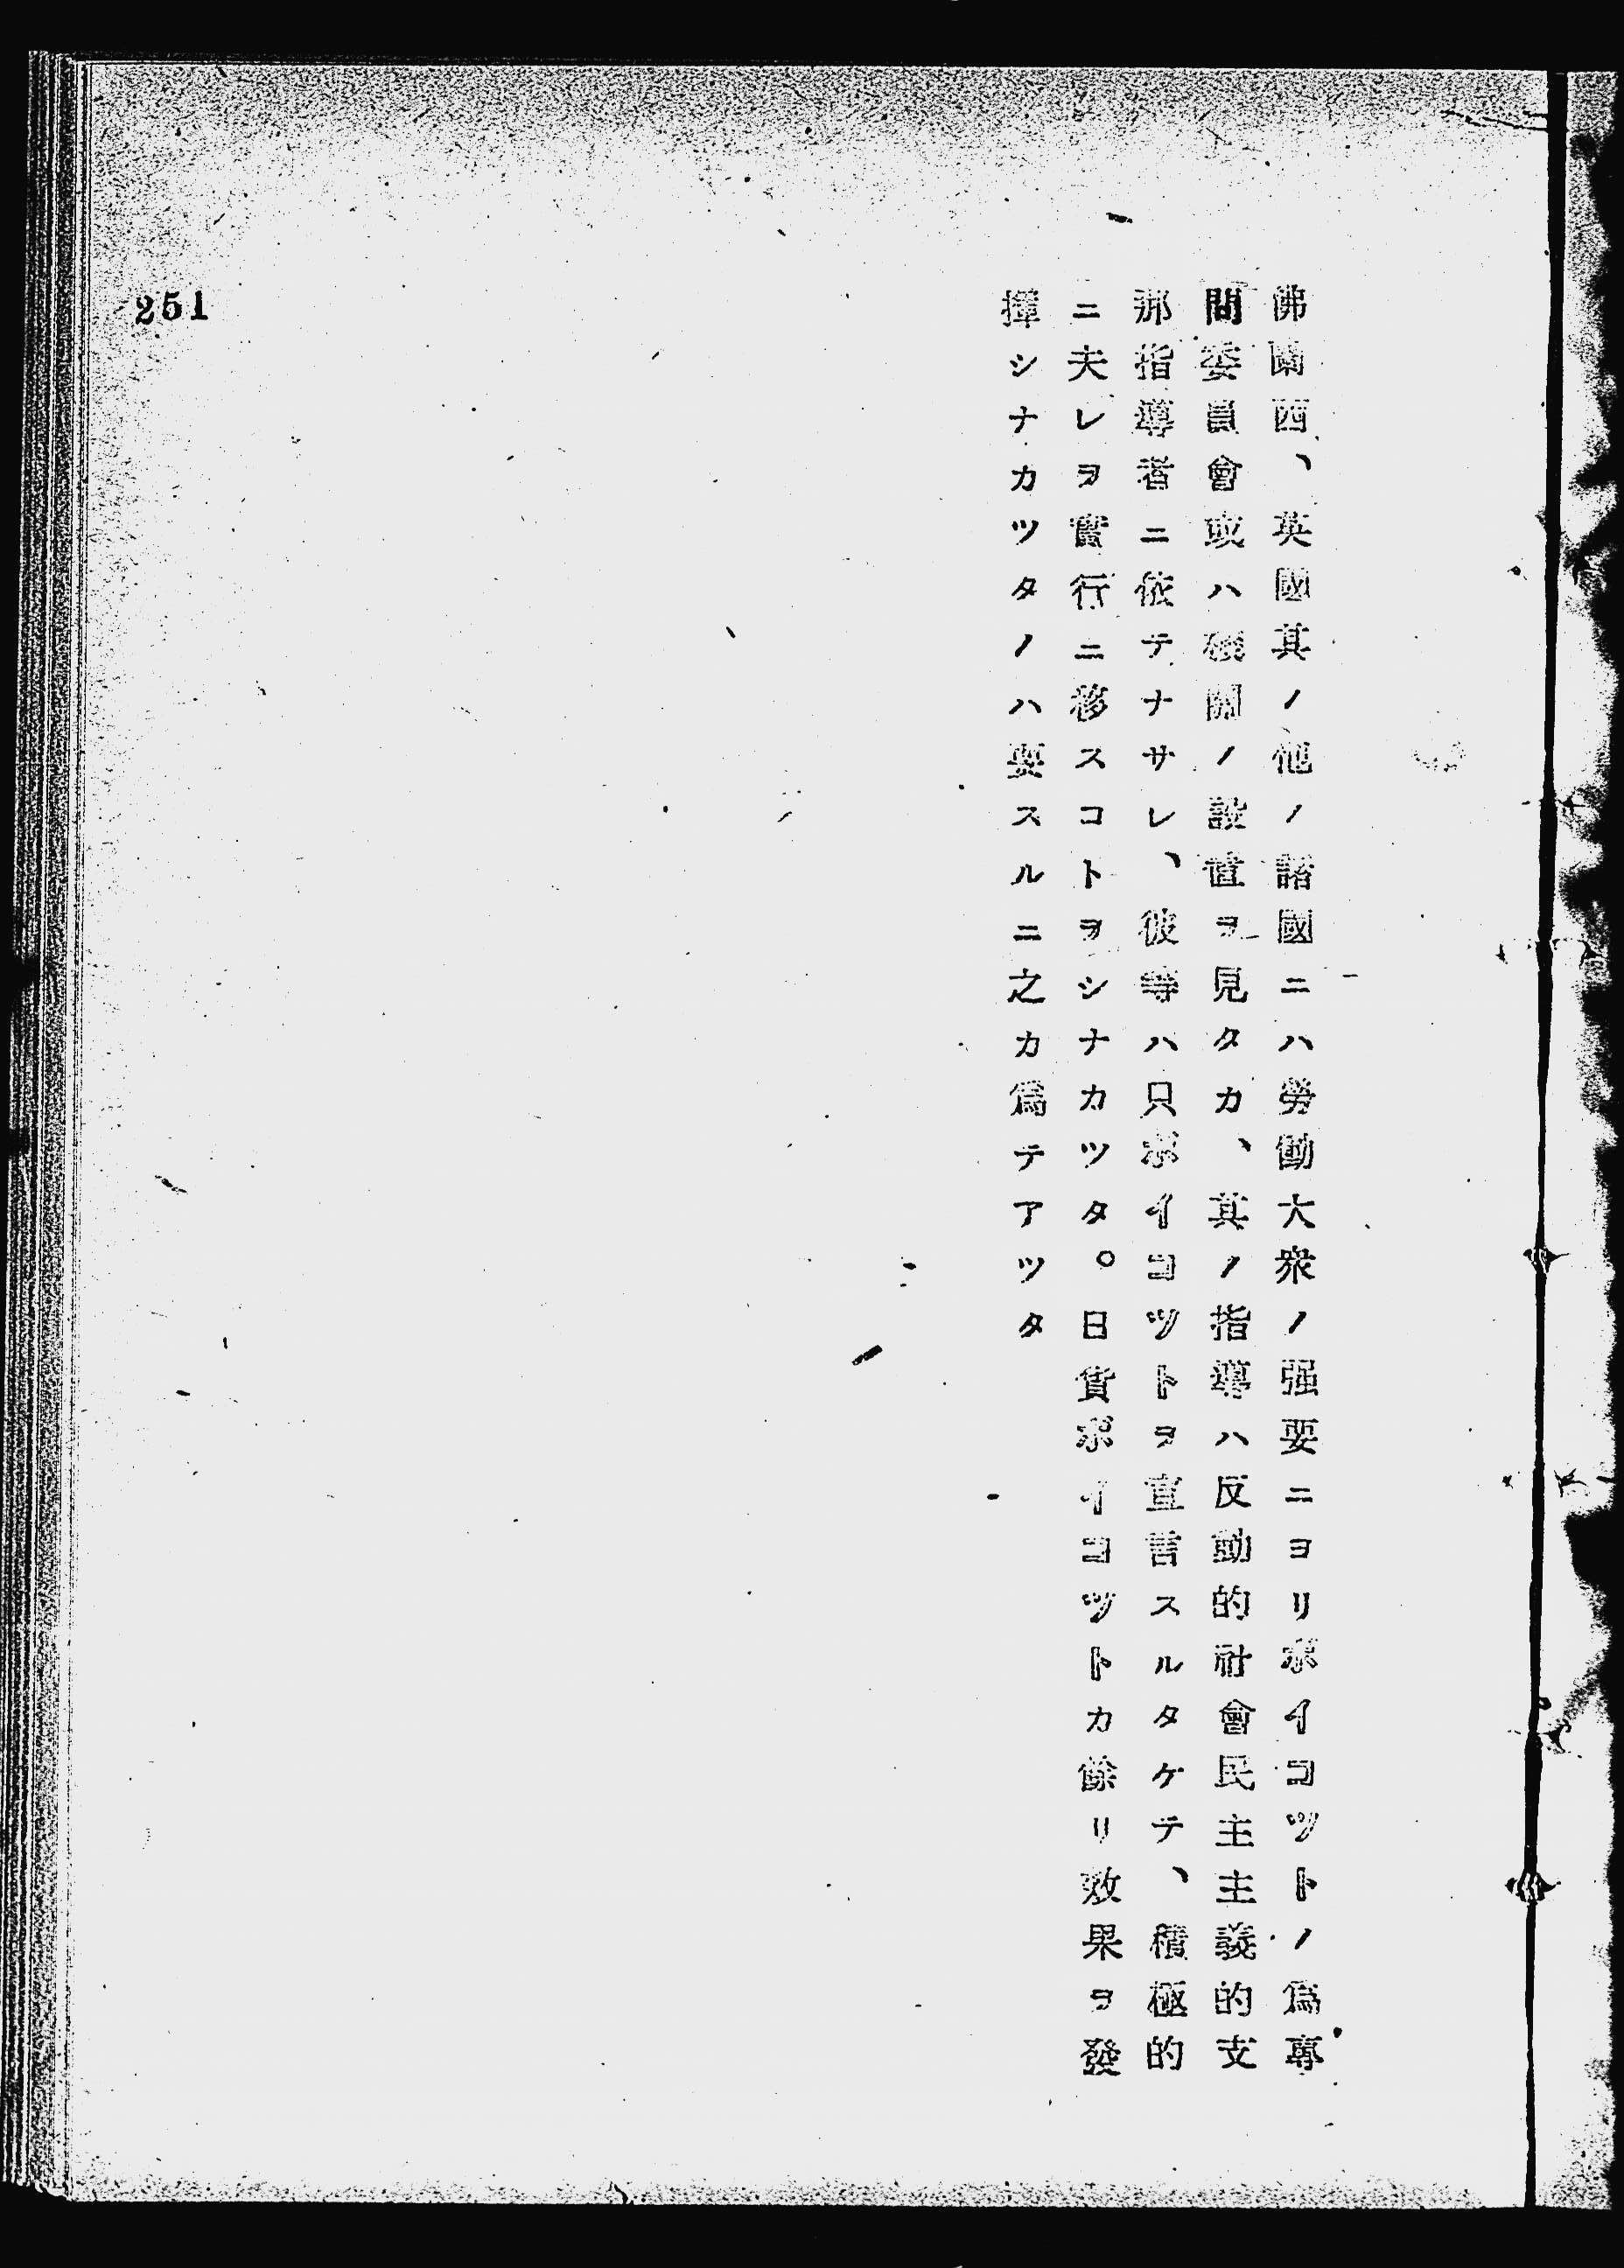 佛蘭西、英國其ノ他ノ諸國ニハ勞働大衆ノ强要ニヨリボイコツトノ爲專
問委員會或ハ機關ノ設置ヲ見タカ、其ノ指導ハ反動的社會民主主義的支
那指導者ニ依テナサレ、彼等ハ只ボイコツトヲ宣言スルタケテ、積極的
ニ夫レヲ實行ニ移スコトヲシナカツタ。日貨ボイコツトカ餘リ效果ヲ發
揮シナカツタノハ要スルニ之カ爲テアツタ
251